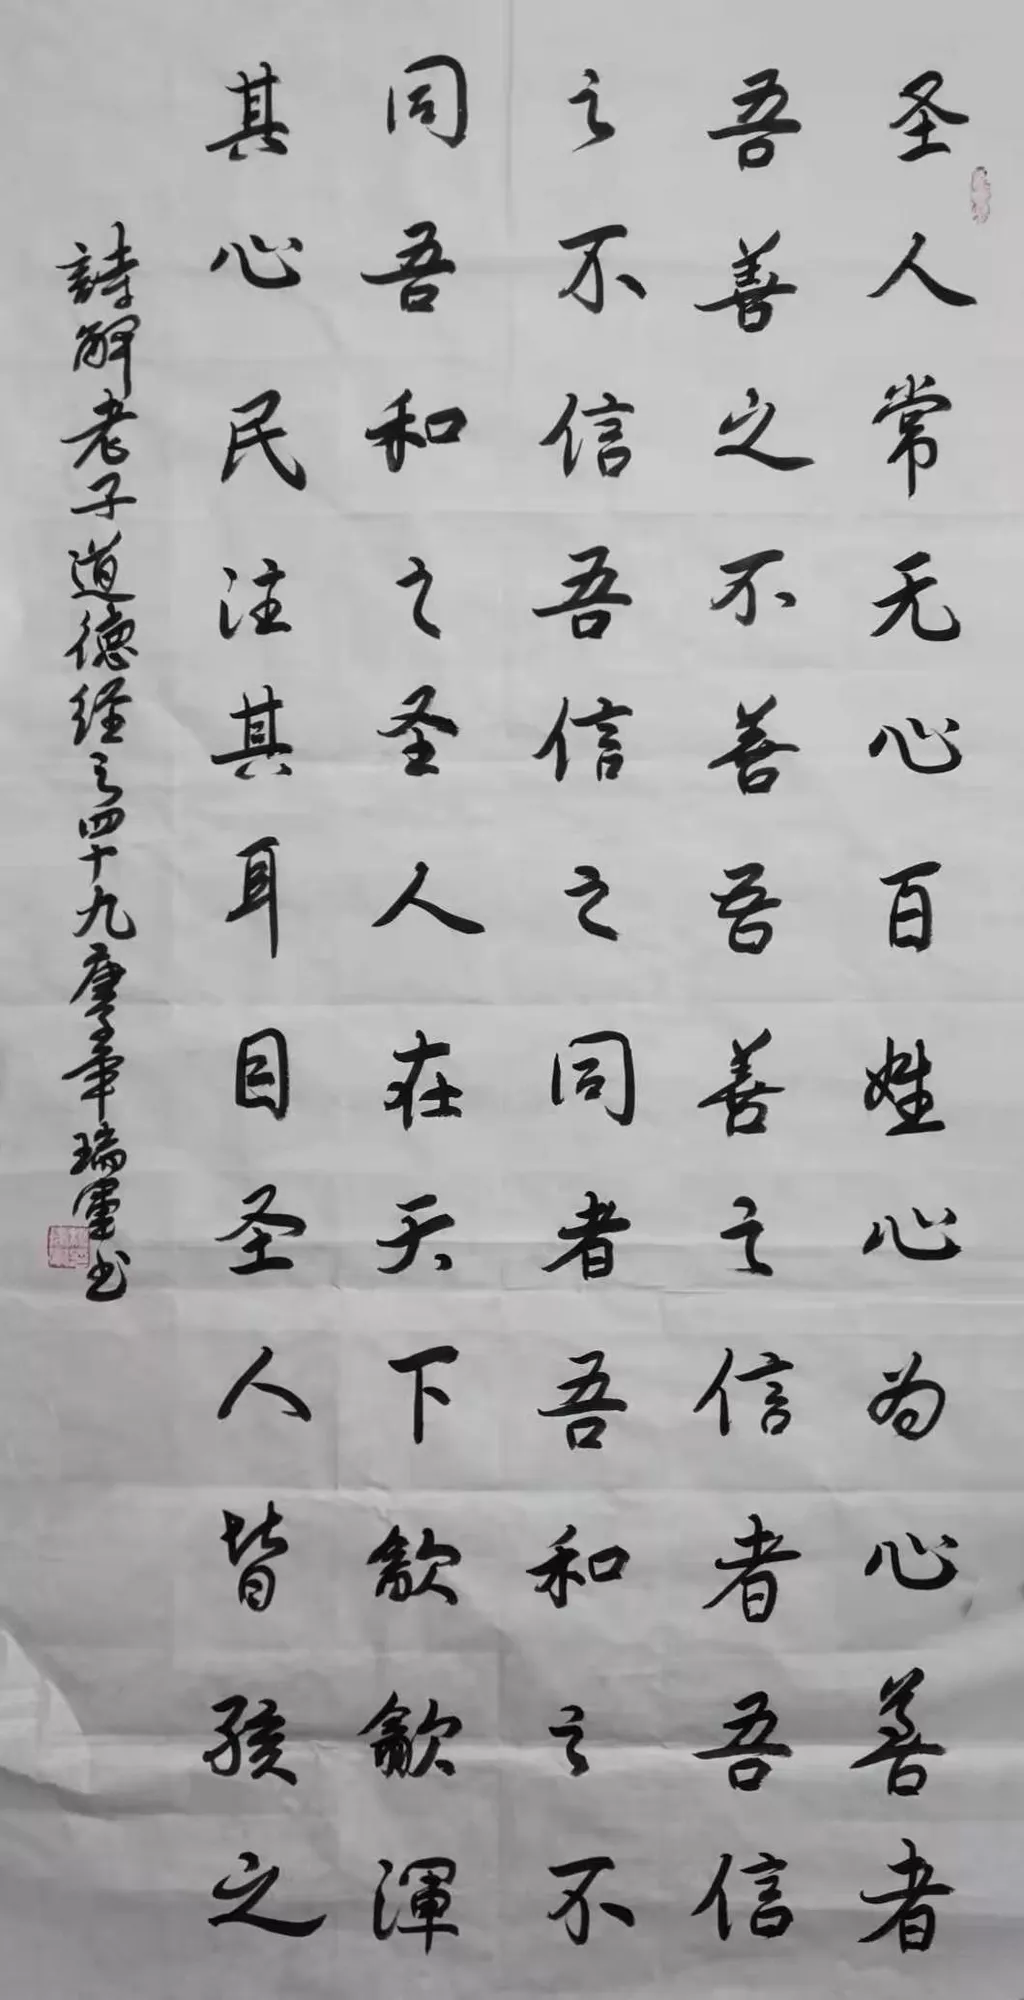 圣人常无心百姓心为心善者
吾善之不善吾善之信者吾信
之不信吾信之同者吾和之不
同吾和之圣人在天下歙歙浑
其心民注其耳目圣人皆孩之
詩解老子道德经之四十九庚子年瑞墨书